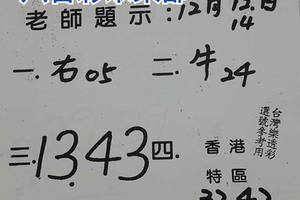 老師題示：12月12日
14
一.右05 二.牛24
三.1343四.
香港
特區
台灣樂透彩
選號參考用